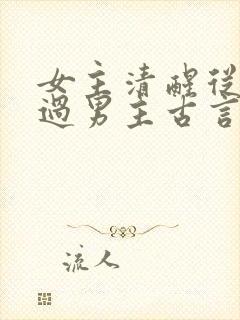 女主清醒從
過男主古言
流人